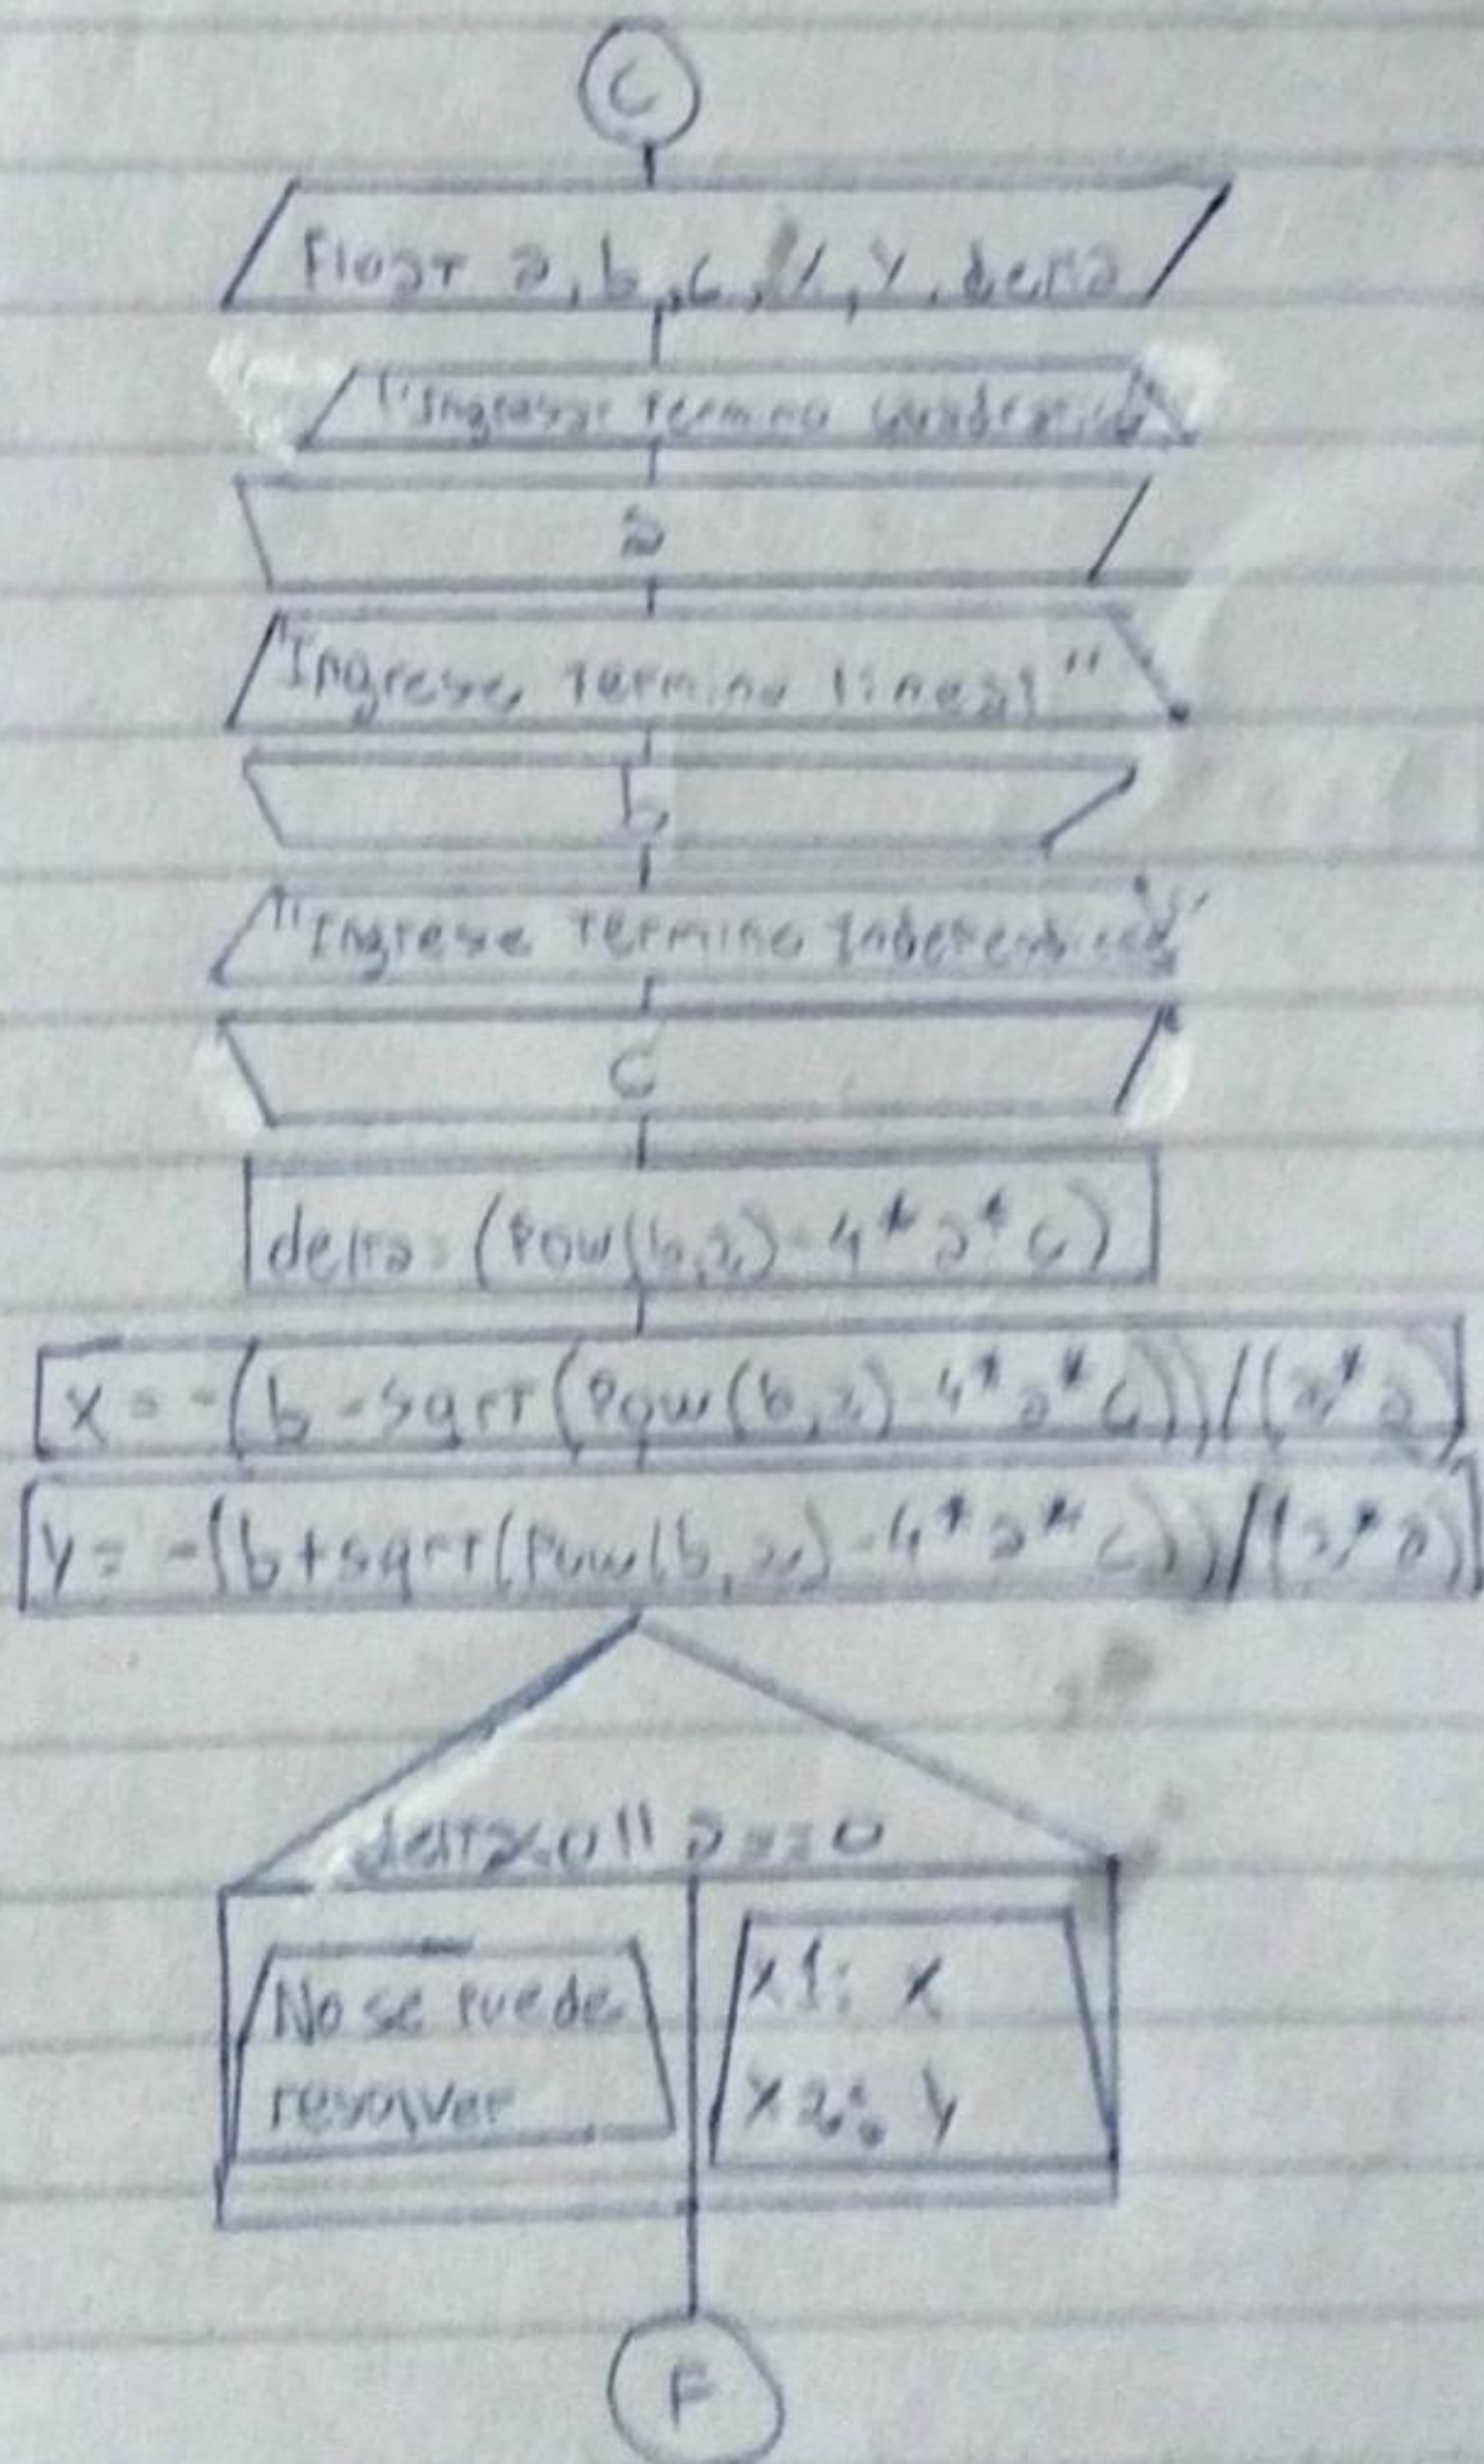 C
Float a, b, c, x, y, delta
"Ingrese termino cuadratico"
a
"Ingrese termino lineal"
b
"Ingrese termino independiente"
c
delta = (pow(b,2)-4*a*c)
x = -(b-sqrt(pow(b,2)-4*a*c))/(2*a)
y = -(b+sqrt(pow(b,2)-4*a*c))/(2*a)
delta<0 || a==0
No se puede
resolver
x1: x
x2: y
F